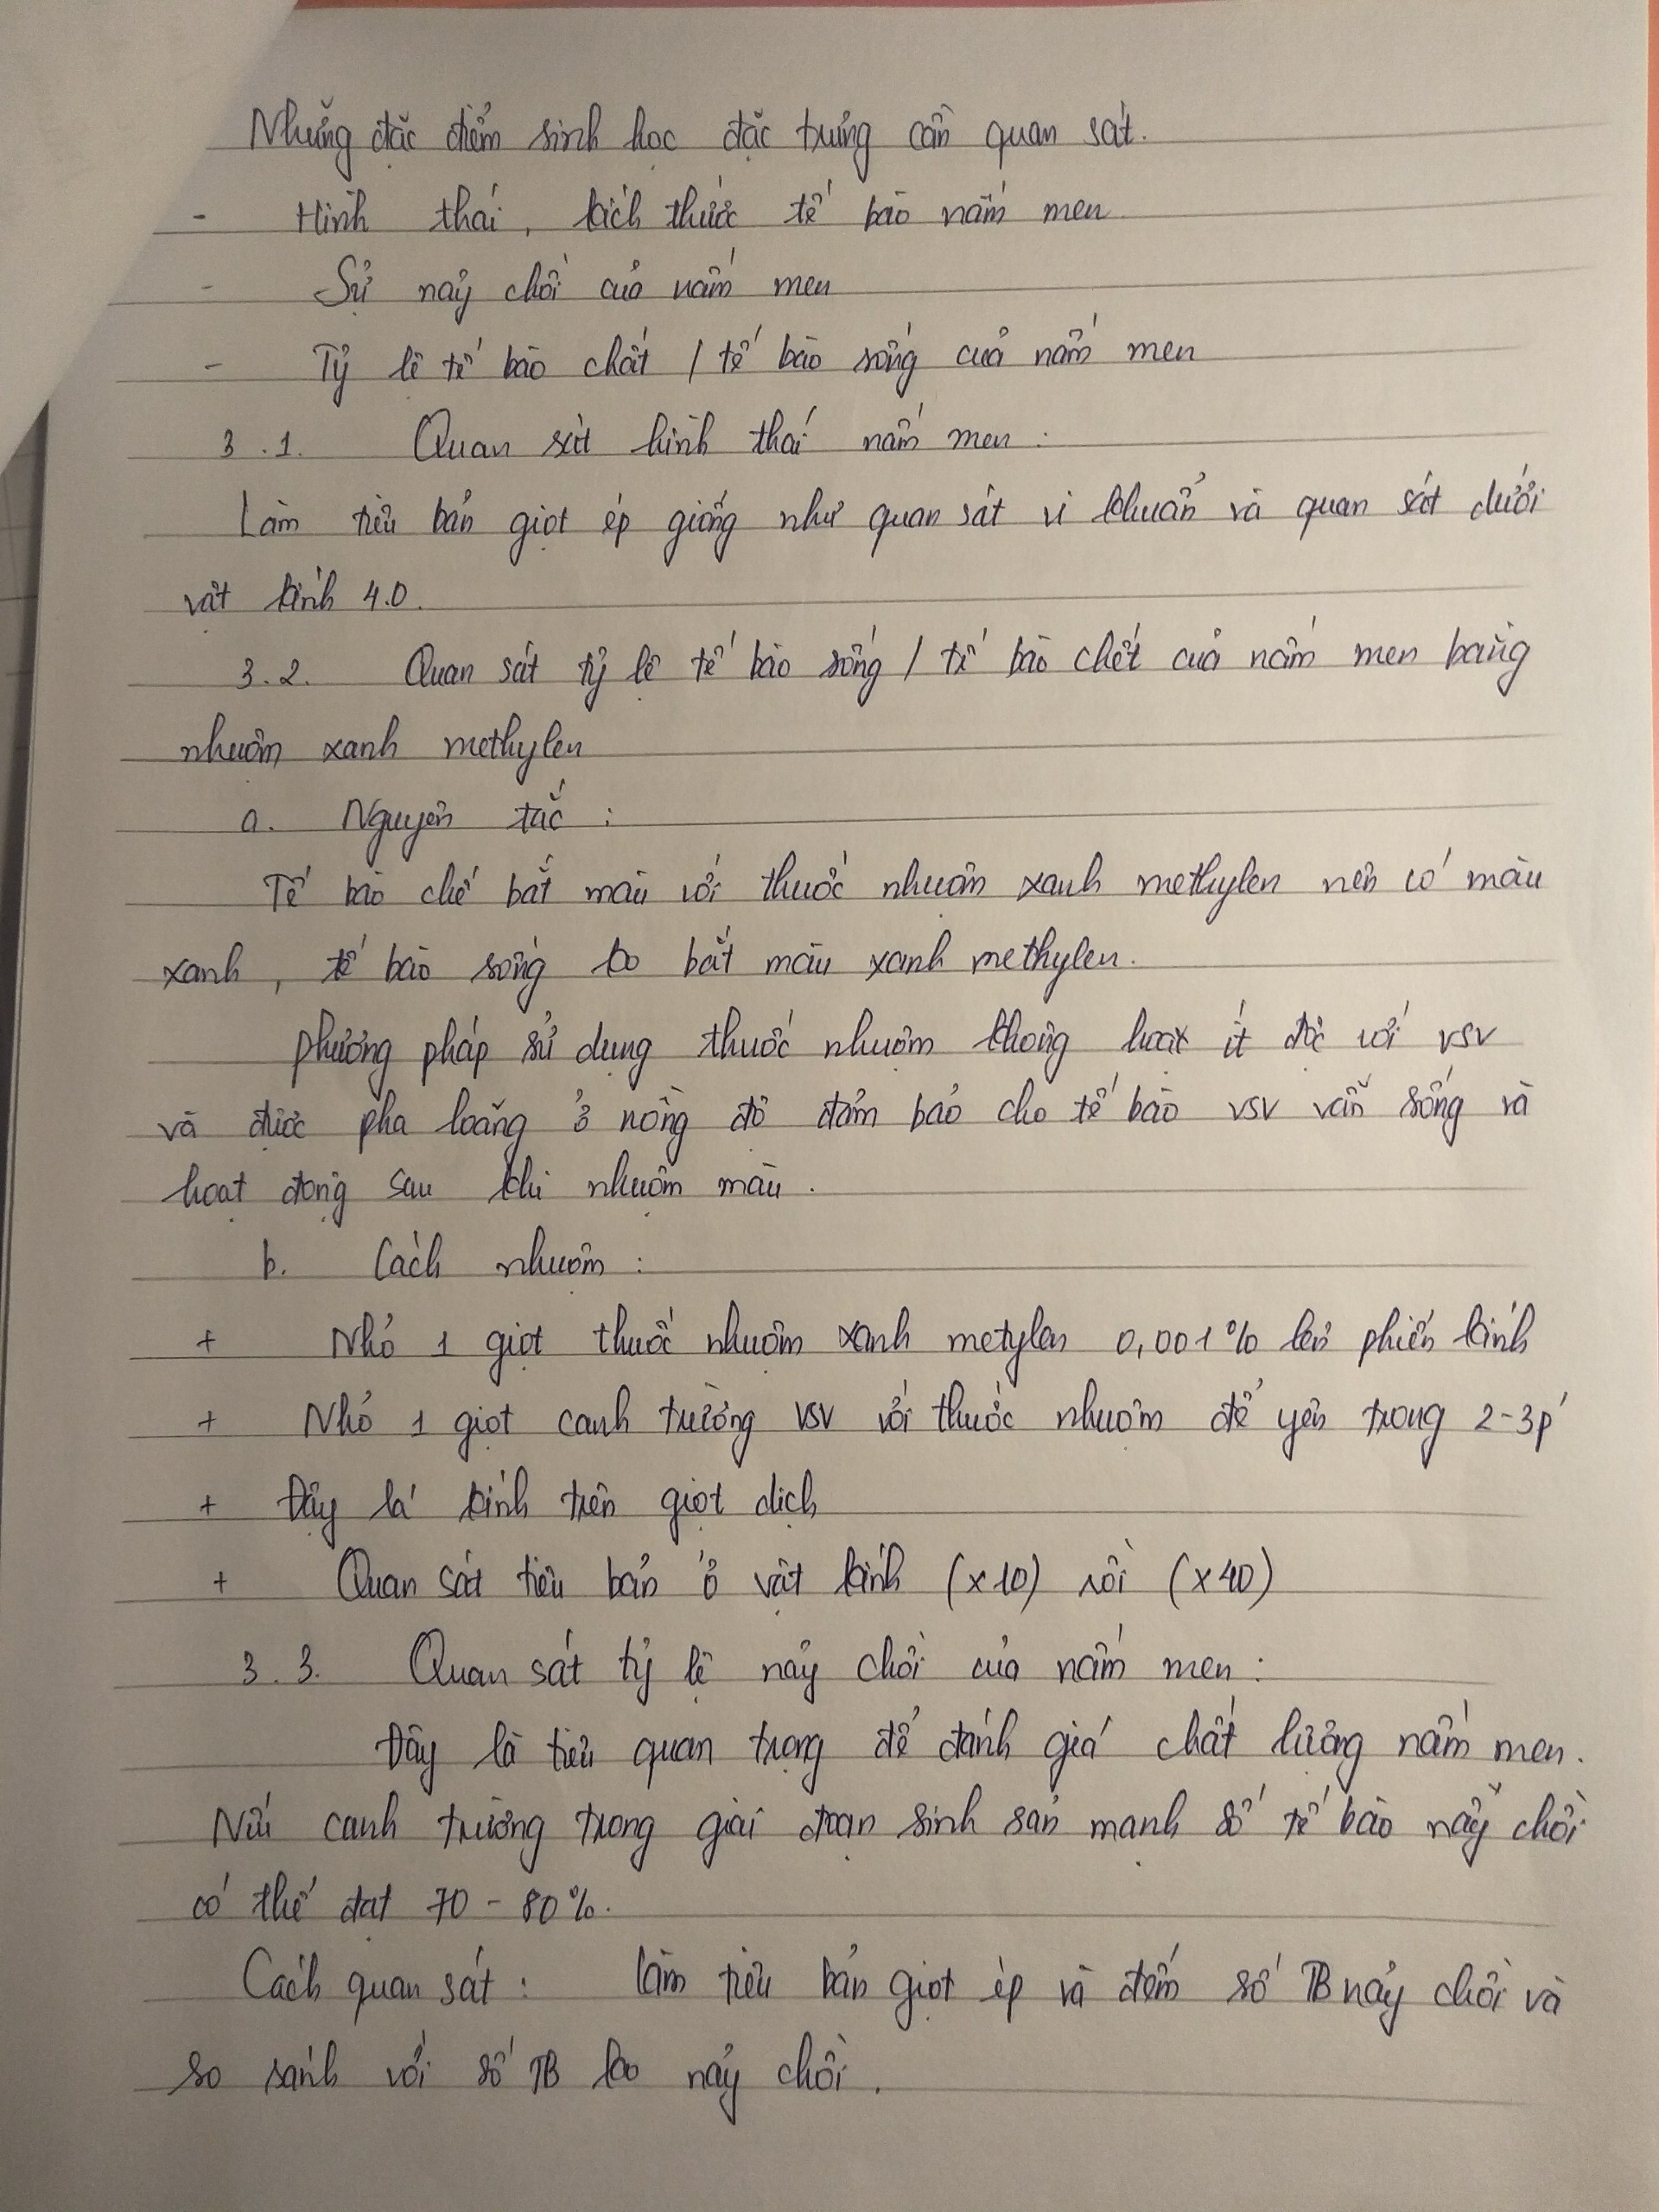 Những đặc điểm sinh học đặc trưng cần quan sát.
- Hình thái, kích thước tế bào nấm men
- Sự nảy chồi của nấm men
- Tỷ lệ tế bào chất / tế bào sống của nấm men
3.1. Quan sát hình thái nấm men :
Làm tiêu bản giọt ép giống như quan sát vi khuẩn và quan sát dưới
vật kính 4.0.
3.2. Quan sát tỷ lệ tế bào sống / tế bào chết của nấm men bằng
nhuộm xanh methylen
a. Nguyên tắc :
Tế bào chế bắt màu với thuốc nhuộm xanh methylen nên có màu
xanh, tế bào sống ko bắt màu xanh methylen.
Phương pháp sử dụng thuốc nhuộm thông hoạt ít độc với vsv
và được pha loãng ở nồng độ đảm bảo cho tế bào vsv vẫn sống và
hoạt động sau khi nhuộm màu.
b. Cách nhuộm :
+ Nhỏ 1 giọt thuốc nhuộm xanh metylen 0,001% lên phiến kính
+ Nhỏ 1 giọt canh trường VSV với thuốc nhuộm để yên trong 2-3p'
+ Đậy lá kính trên giọt dịch
+ Quan sát tiêu bản ở vật kính (x10) rồi (x40)
3.3. Quan sát tỷ lệ nảy chồi của nấm men :
Đây là tiêu quan trọng để đánh giá chất lượng nấm men.
Nếu canh trường trong giai đoạn sinh sản mạnh số tế bào nảy chồi
có thể đạt 70 - 80%.
Cách quan sát : làm tiêu bản giọt ép và đếm số TB nảy chồi và
so sánh với số TB ko nảy chồi.